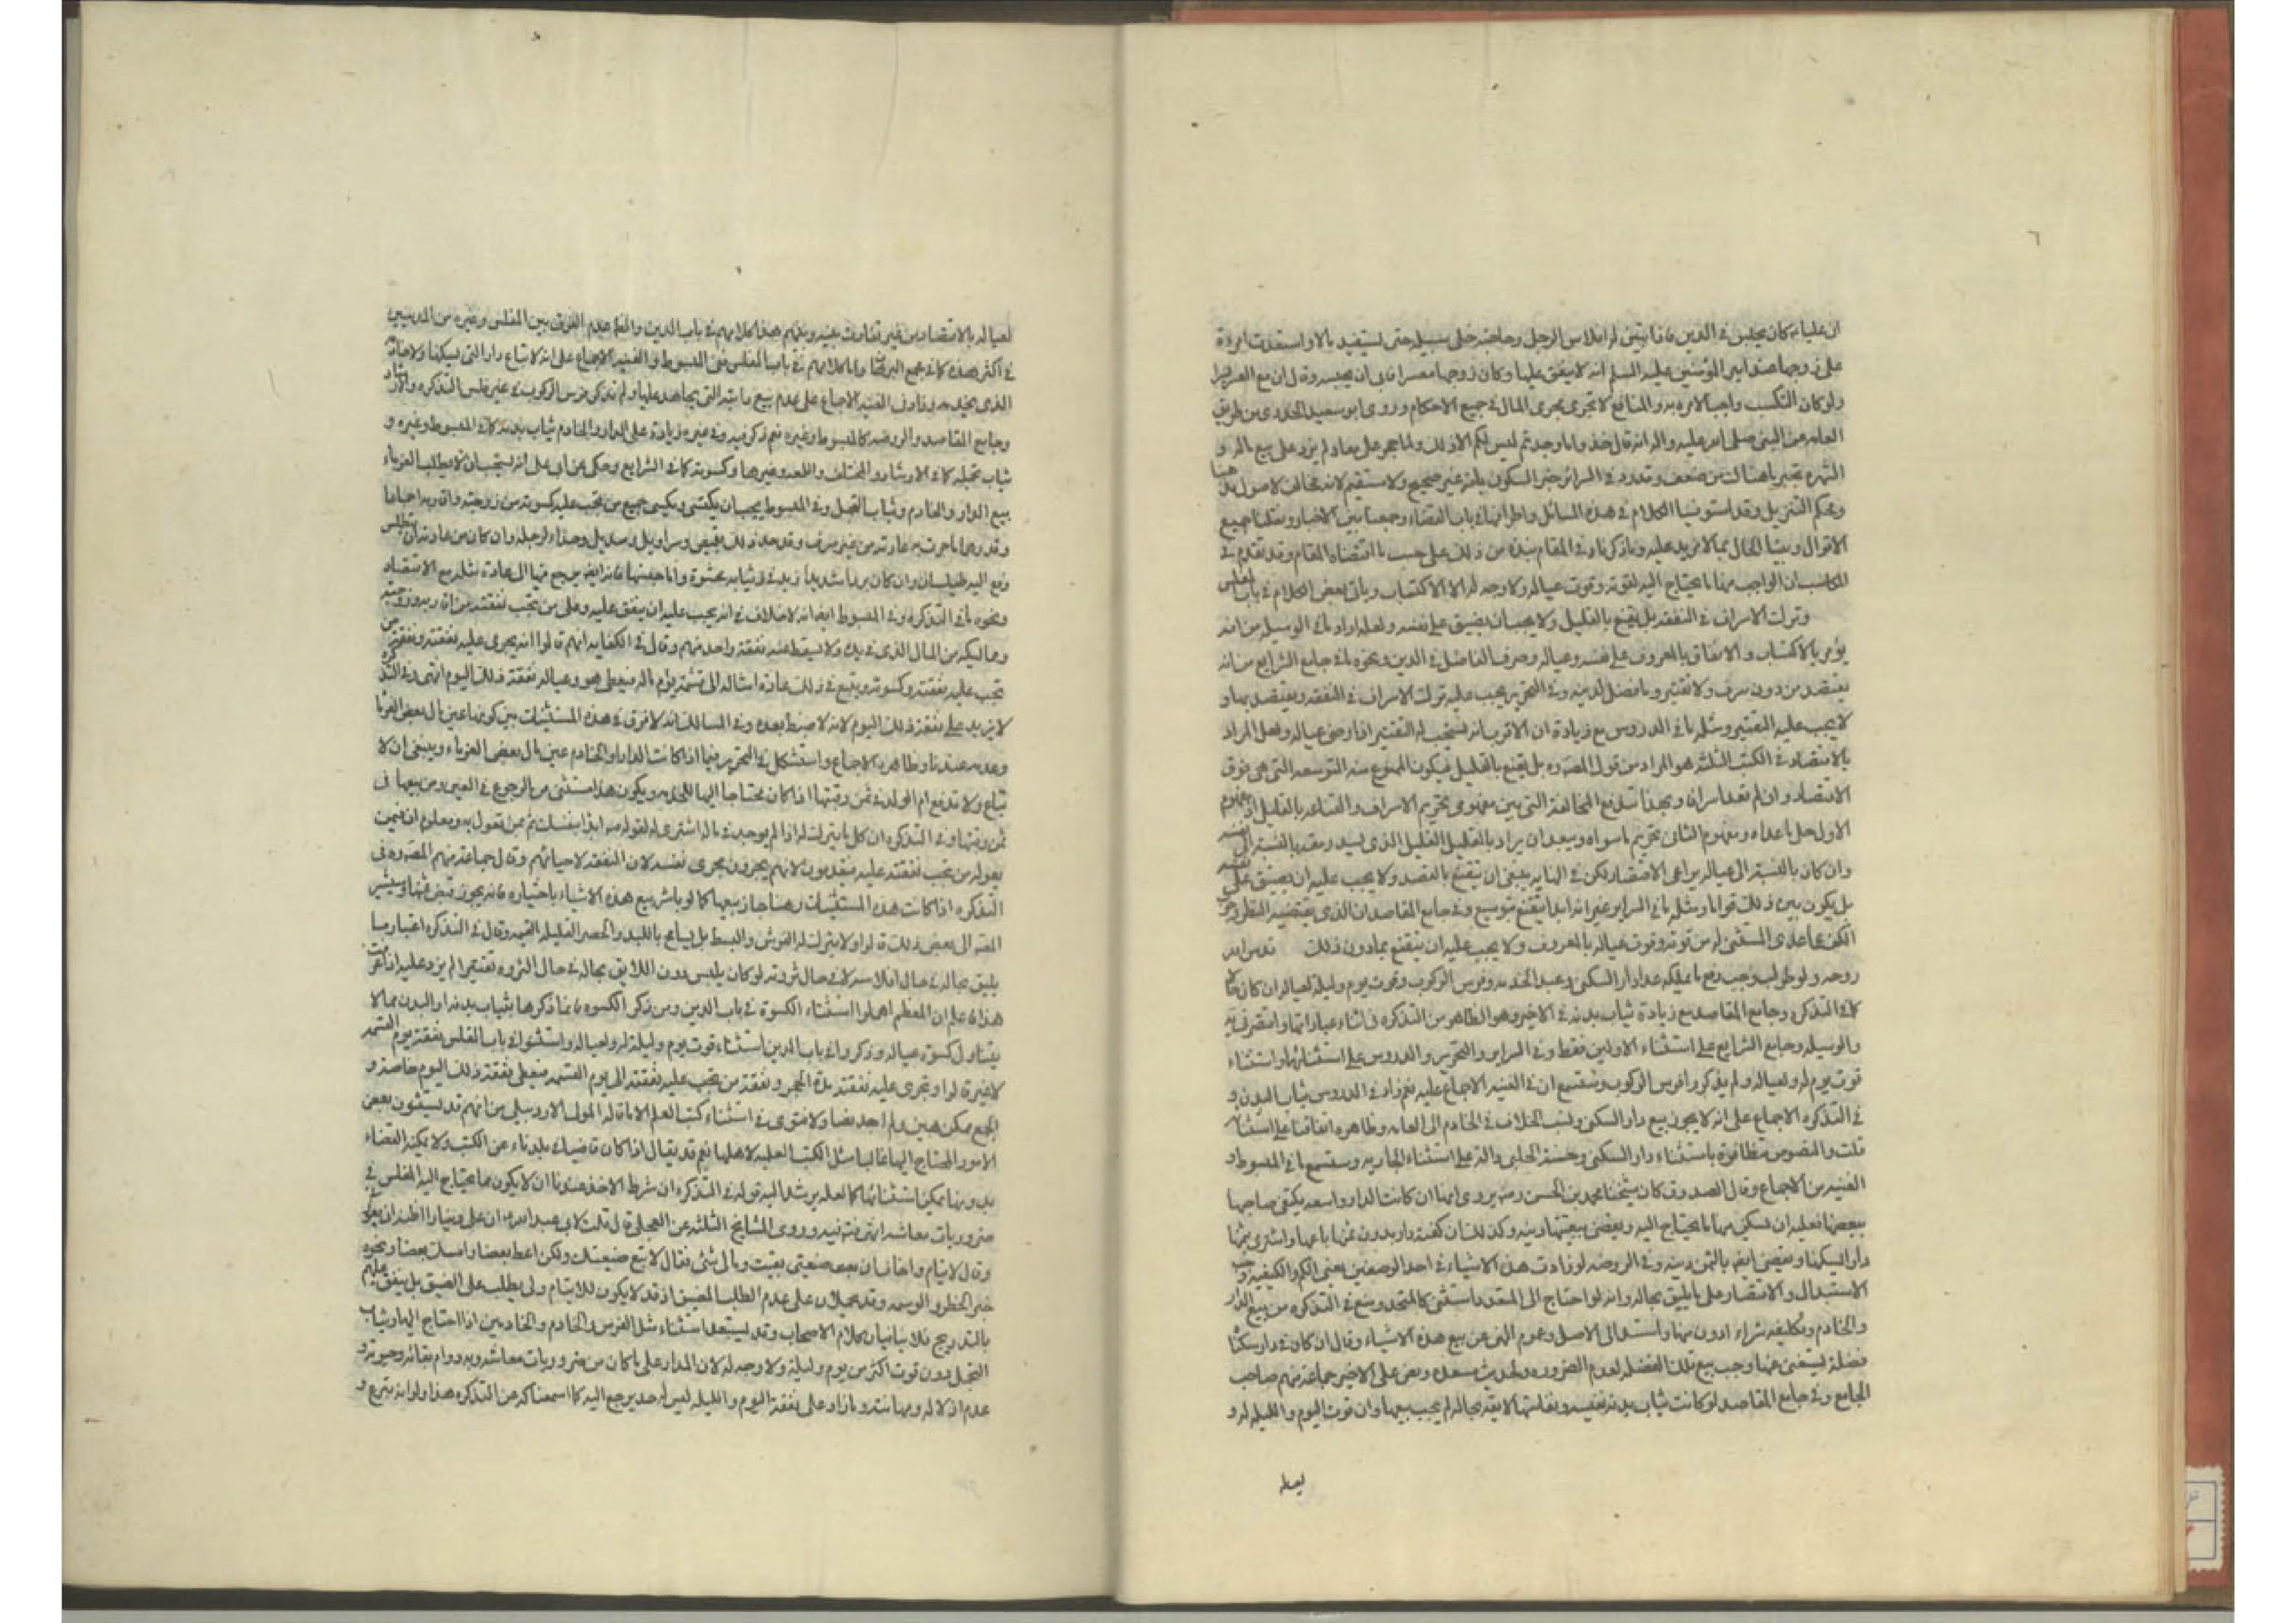 ٦
ان عليا ع كان يحبس في الدين فاذا تبين له افلاس الرجل وحاجته خلى سبيله حتى يستفيد مالا واستعدت امرءة
على زوجها عند امير المؤمنين عليه السلم انه لا ينفق عليها وكان زوجها معسرا فابى ان يحبسه وقال ان مع العسر يسرا
ولو كان التكسب واجبا لامره به والمنافع لا تجرى مجرى المال في جميع الاحكام وروى ابو سعيد الخدرى من طريق
العامه عن النبى صلى الله عليه واله انه قال خذوا ما وجدتم ليس لكم الا ذلك ولما حجر على معاذ لم يزد على بيع ماله و
الشهره تجبر ما هناك من ضعف وتردد في السرائر خبر السكونى بانه غير صحيح ولا مستقيم لانه مخالف لاصول مذهبنا
ومحكم التنزيل وقد استوفينا الكلام في هذه المسائل واطرافها في باب القضاء وجمعنا بين الاخبار وسكنا جميع
الاقوال وبينا الحال بما لا مزيد عليه وما ذكرناه في المقام نبذة من ذلك على حسب ما اقتضاه المقام وقد تقدم في
المكاسب ان الواجب منها ما يحتاج اليه لقوته وقوت عياله ولا وجه له الا الاكتساب وياتى بعض الكلام في باب المفلس
وترك الاسراف في النفقه بل يقنع بالقليل ولا يجب ان يضيق على نفسه ولعله اراد ما في الوسيله من انه
يؤمر بالاكتساب والانفاق بالمعروف على نفسه وعياله وصرف الفاضل في الدين ونحوه ما في جامع الشرايع من انه
يقتصد من دون سرف ولا تقتير وما فضل لدينه وفي التحرير يجب عليه ترك الاسراف في النفقه ويقتصد بها و
لا يجب عليه التقتير ومثله ما في الدروس مع زيادة ان الاقرب انه يستحب له التقتير اذا رضى عياله ولعل المراد
بالاقتصاد في الكتب الثلثه هو المراد من قول المصه ره بل يقنع بالقليل فيكون الممنوع منه التوسعه التى هى فوق
الاقتصاد وان لم تعد اسرافا وبهذا تندفع المخالفة التى بين مفهومى تحريم الاسراف والقناعه بالقليل اذ مفهوم
الاول حل ما عداه ومفهوم الثانى تحريم ما سواه ويبعد ان يراد بالقليل القليل الذى يسد رمقه بالنسبة الى نفسه
وان كان بالنسبة الى عياله يراعى الاقتصاد لكن في النهايه ينبغى ان يتقنع بالقصد ولا يجب عليه ان يضيق على نفسه
بل يكون بين ذلك قواما ومثله ما في السراير غير انه ابدل يتقنع بتوسع وفي جامع المقاصد ان الذى يقتضيه النظر وجوب
الكف عما عدى المستثنى له من قوته وقوت عياله بالمعروف ولا يجب عليه ان يتقنع بما دون ذلك قدس الله
روحه ولو طولب وجب دفع ما يملكه عدا دار السكنى وعبد الخدمه وفرس الركوب وقوت يوم وليلة لعياله ان كان حالا
كما في التذكره وجامع المقاصد مع زيادة ثياب بدنه في الاخير وهو الظاهر من التذكره في اثناء عباراتها واقتصر في يه
والوسيله وجامع الشرايع على استثناء الاولين فقط وفي السراير والتحرير والدروس على استثنائهما واستثناء
قوت يوم له ولعياله ولم يذكروا فرس الركوب وستسمع ان في الغنيه الاجماع عليه نعم زاد في الدروس ثياب البدن و
في التذكره الاجماع على انه لا يجوز بيع دار السكنى ونسب الخلاف في الخادم الى العامه وظاهره اتفاقنا على استثنائه
قلت والنصوص متظافرة باستثناء دار السكنى وحسنة الحلبى دالة على استثناء الجاريه وستسمع ما في المبسوط و
الغنيه من الاجماع وقال الصدوق كان شيخنا محمد بن الحسن رضه يروى انها ان كانت الدار واسعه يكتفى صاحبها
ببعضها فعليه ان يسكن منها ما يحتاج اليه ويقضى ببقيتها دينه وكذلك ان كفته دار بدون ثمنها باعها واشترى بثمنها
دارا ليسكنها ويقضى ايضا بالثمن دينه وفي الروضه لو زادت هذه الاشياء في احد الوصفين يعنى الكم والكيفيه وجب
الاستبدال والاقتصار على ما يليق بحاله وانه لو احتاج الى المتعدد استثنى كالمتحد ومنع في التذكره من بيع الدار
والخادم وتكليفه شراء ادون منها واستند الى الاصل وعموم النهى عن بيع هذه الاشياء وقال ان كان في دار سكناه
فضلة يستغنى عنها وجب بيع تلك الفضله لعدم الضروره ولحديث مسعده ونص على الاخير جماعة منهم صاحب
الجامع وفي جامع المقاصد لو كانت ثياب بدنه نفيسه وبقائها لا يقه بحاله لم يجب بيعها وان قوت اليوم والليله له و
لعياله
لعياله بالاقتصاد من غير تفاوت بينه وبينهم هذا كلامهم في باب الدين والظ عدم الفرق بين المفلس وغيره من المديونين
في اكثر هذه كما في مجمع البرهان واما كلامهم في باب المفلس ففى المبسوط والغنيه الاجماع على انه لا تباع داره التى يسكنها ولا خادمه
الذى يخدمه وزاد في الغنيه الاجماع على عدم بيع دابته التى يجاهد عليها ولم تذكر فرس الركوب في غير مفلس التذكره والارشاد
وجامع المقاصد والروضه كالمبسوط وغيره نعم ذكر فيه وفي غيره زيادة على الدار والخادم ثياب بدنه كما في المبسوط وغيره و
ثياب تجمله كما في الارشاد والمختلف واللمعه وغيرها وكسوته كما في الشرايع وحكى عن ابى على انه يستحب ان لا يطالب الغرماء
ببيع الدار والخادم وثياب التجمل وفي المبسوط يجب ان يكتسى ويكسى جميع من تجب عليه كسوته من زوجته واقاربه اجماعا
وقدرها ما جرت به عادته من غير سرف وقد حد ذلك بقميص وسراويل ومنديل وحذاء لرجله وان كان من عادته ان يتطلس
دفع اليه طيلسان وان كان بردا شديدا زيد في ثيابه محشوة واما جنسها فانه ايضا يرجع فيها الى عادة مثله مع الاقتصاد
ونحوه ما في التذكرة وفي المبسوط ايضا انه لا خلاف في انه يجب عليه ان ينفق عليه وعلى من تجب نفقته من اقاربه وزوجته
ومماليكه من المال الذى في يده ولا يسقط عنه نفقة واحد منهم وقال في الكفايه انهم قالوا انه يجرى عليه نفقته ونفقة من
تجب عليه نفقته وكسوته ويتبع في ذلك عادة امثاله الى قسمة يوم ماله فيعطى هو وعياله نفقة ذلك اليوم انتهى وفي التذكره
لا يزيد على نفقة ذلك اليوم لانه لا ضبط بعده وفي المسالك انه لا فرق في هذه المستثنيات بين كونها عين مال بعض الغرما
وعدمه عندنا وظاهره الاجماع واستشكل في التحرير فيما اذا كانت الدار او الخادم عين مال بعض الغرماء وينبغى ان لا
تباع ولا تدفع ام الولد في ثمن رقبتها اذا كان محتاجا اليها للخدمه ويكون هذا مستثنى من الرجوع في العين ومن بيعها فى
ثمن رقبتها وفي التذكره ان كل ما يترك له اذا لم يوجد في ماله اشترى له لقوله ص ابدأ بنفسك ثم بمن تعول به ومعلوم ان فيمن
يعوله من تجب نفقته عليه مقدمون لانهم يجرون مجرى نفسه لان النفقه لاحيائهم وقال جماعة منهم المصه ره فى
التذكره اذا كانت هذه المستثنيات رهنا جاز بيعها كما لو باشر بيع هذه الاشياء باختياره فانه يجوز قبض ثمنها ويشير
المصه الى بعض ذلك قالوا ولا يترك له الفرش والبسط بل يسامح باللبد والحصير القليلة القيمه وقال في التذكره اعتبار ما
يليق بحاله في حال افلاسه لا في حال ثروته لو كان يلبس دون اللايق بحاله في حال الثروه تقتيرا لم يزد عليه اذا عرفت
هذا فاعلم ان المعظم اهملوا استثناء الكسوة في باب الدين ومن ذكر الكسوه فانما ذكرها بثياب بدنه او البدن مما لا
يتناول كسوة عياله وذكروا في باب الدين استثناء قوت يوم وليلة له ولعياله واستثنوا في باب المفلس نفقة يوم القسمه
لا غير قالوا وتجرى عليه نفقته مدة الحجر ونفقة من تجب عليه نفقته الى يوم القسمه فيعطى نفقة ذلك اليوم خاصة و
الجمع ممكن هين ولم اجد نصا ولا فتوى في استثناء كتب العلم الا ما قاله المولى الاردبيلى من انهم قد يستثنون بعض
الامور المحتاج اليها غالبا مثل الكتب العلميه لاهلها نعم قد يقال اذا كان قاضيا في بلد ناء عن الكتب ولا يمكنه القضاء
بدونها يمكن استثنائها كما لعله يرشد اليه قوله في التذكره ان شرط الاخذ عندنا ان لا يكون مما يحتاج اليه المفلس في
ضروريات معاشه انتهى فت فيه وروى المشايخ الثلثه عن العجلى قال قلت لابى عبد الله ع ان على دينا واظنه
وقال لايتام واخاف ان بعت ضيعتى بقيت ومالى شئ فقال لا تبع ضيعتك ولكن اعط بعضا وامسك بعضا ونحوه
بالتدريج فلا ينافيان كلام الاصحاب وقد يستبعد استثناء مثل الفرس والخادم والخادمين اذا احتاج اليها وثياب
التجمل دون قوت اكثر من يوم وليلة ولا وجه له لان المدار على ما كان من ضروريات معاشه وبه دوام بقائه وحيوته و
عدم اذلاله ومهانته وما زاد على نفقة اليوم والليله ليس له حد يرجع اليه كما اسمعناكه عن التذكره هذا ولو انه تبرع و